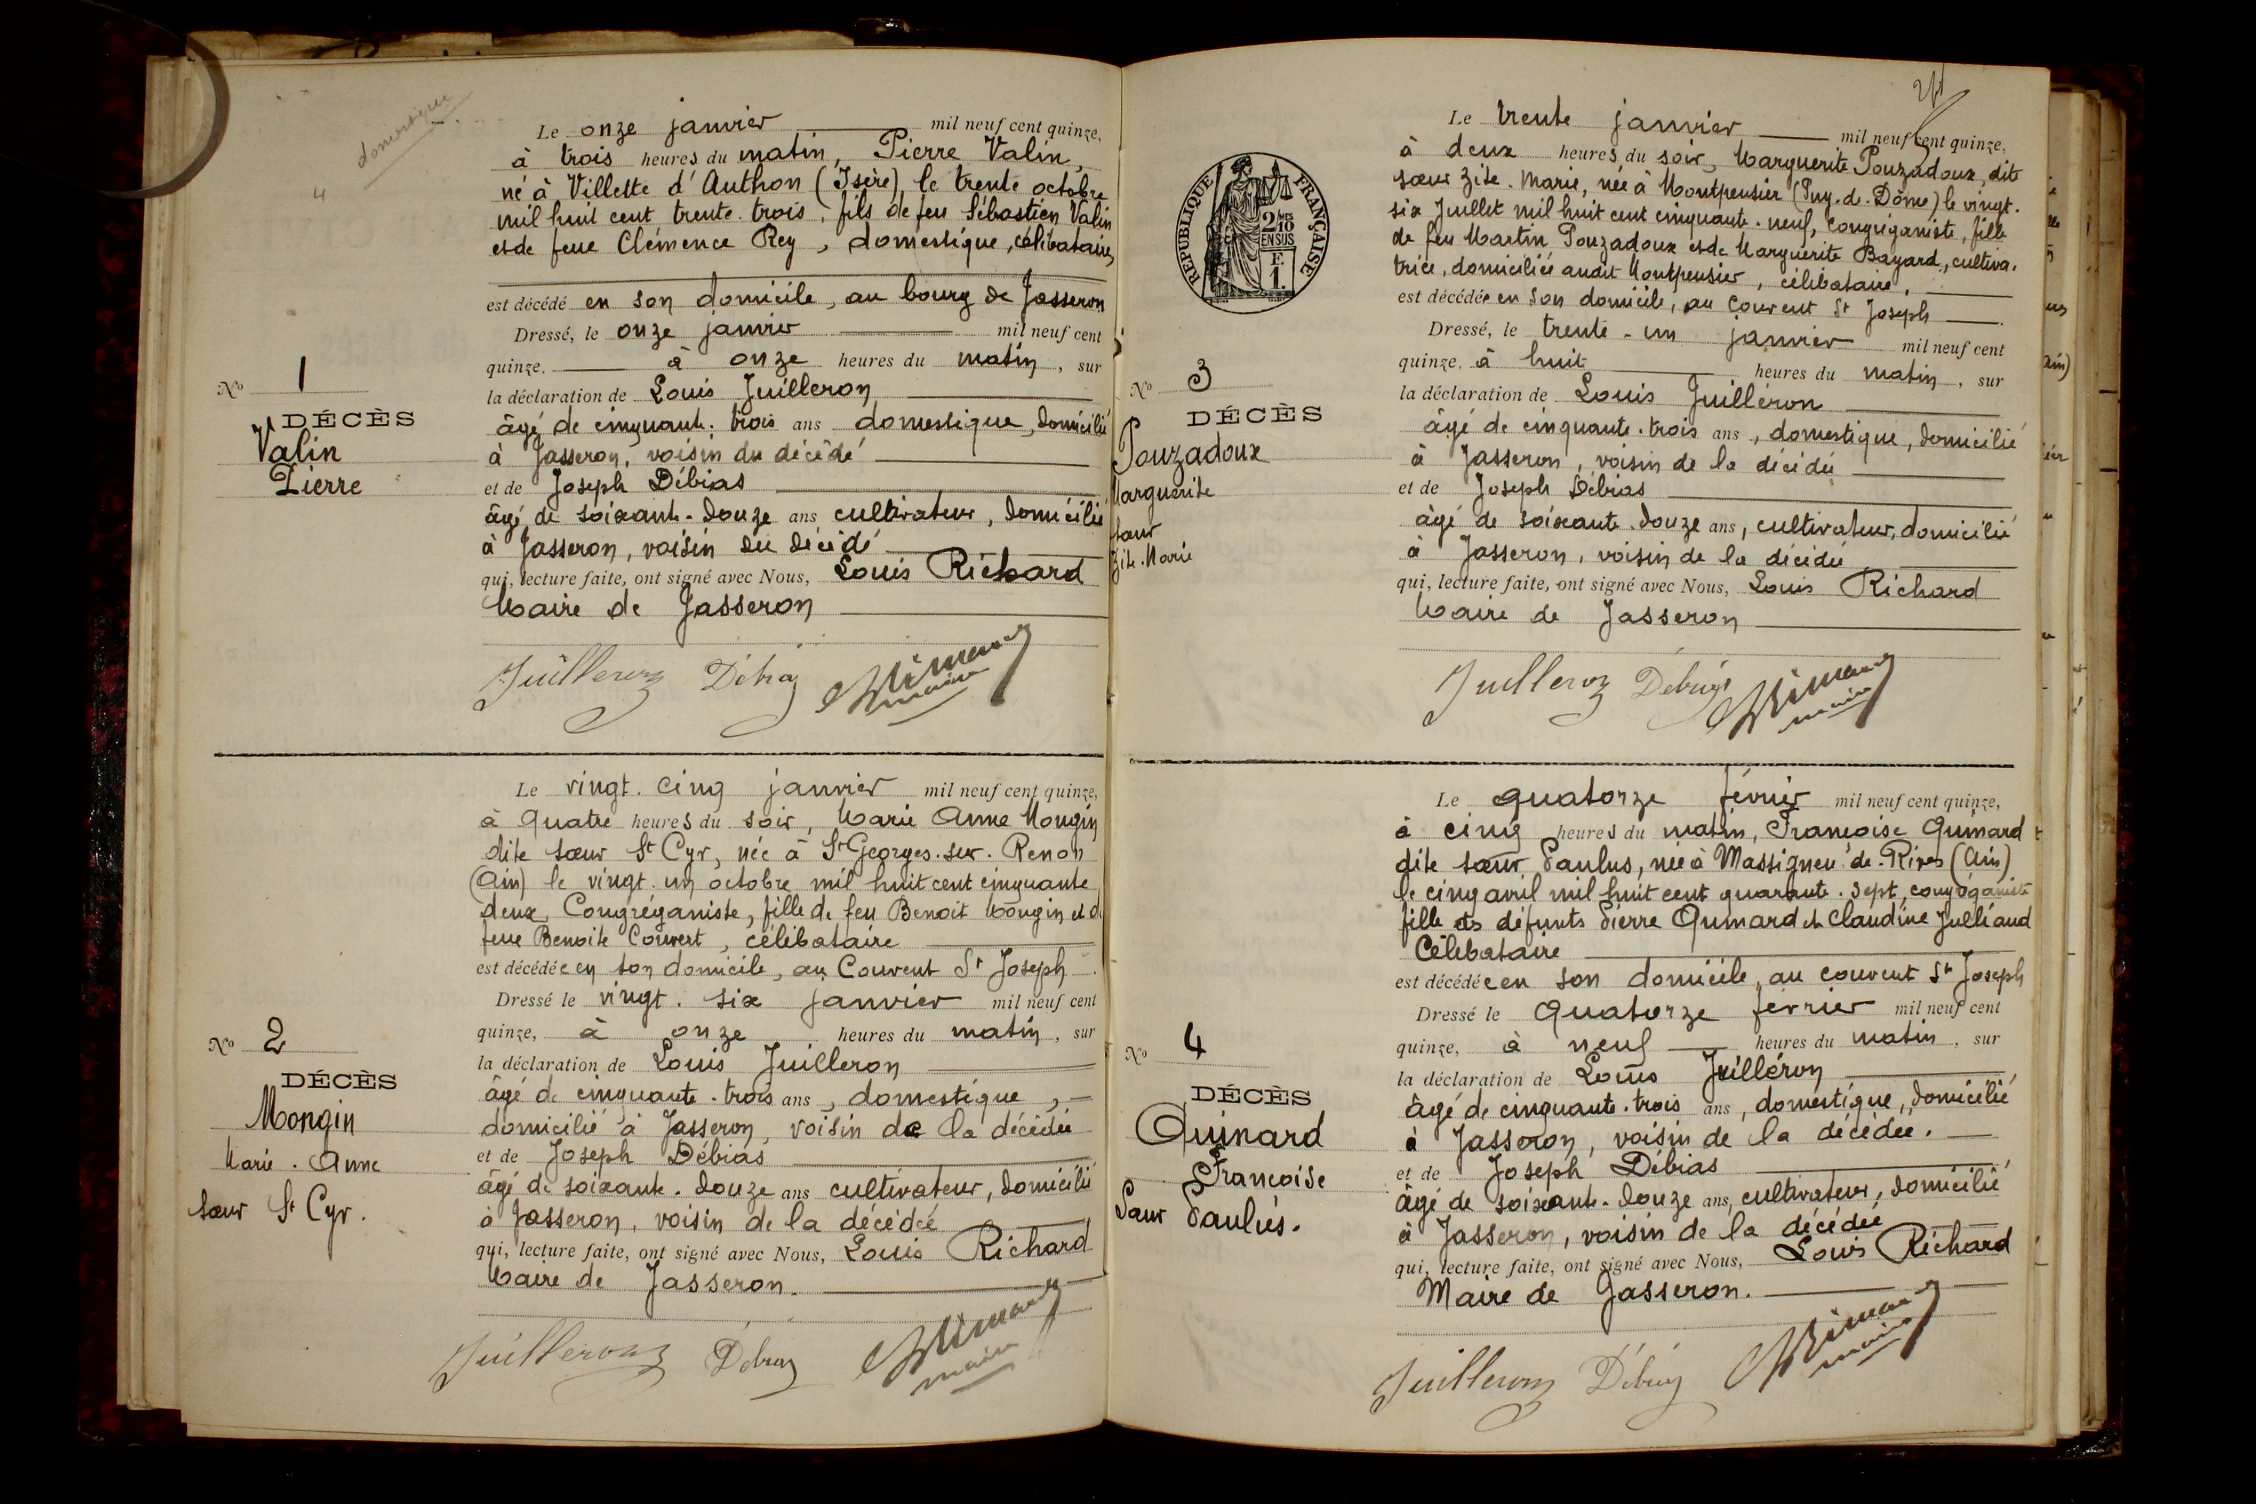 domestique
4
Le onze janvier mil neuf cent quinze,
à trois heures du matin, Pierre Valin,
né à Villette d'Authon (Isère), le trente octobre
mil huit cent trente-trois, fils de feu Sébastien Valin
et de feue Clémence Rey, domestique, célibataire,
est décédé en son domicile, au bourg de Jasseron
Dressé, le onze janvier mil neuf cent
quinze. à onze heures du matin, sur
la déclaration de Louis Juilleron
âgé de cinquante-trois ans domestique, domicilié
à Jasseron, voisin du décédé
et de Joseph Débias
âgé de soixante-douze ans cultivateur, domicilié
à Jasseron, voisin du décédé
qui, lecture faite, ont signé avec Nous, Louis Richard
Maire de Jasseron
Juilleron Débias
maire
No 1
DÉCÈS
Valin
Pierre
Le vingt-cinq janvier mil neuf cent quinze,
à quatre heures du soir, Marie Anne Mongin
dite sœur St Cyr, née à St Georges-sur-Renon
(Ain) le vingt-un octobre mil huit cent cinquante
deux, Congréganiste, fille de feu Benoit Mongin et de
feue Benoite Convert, célibataire
est décédée en son domicile, au Couvent St Joseph.
Dressé le vingt-six janvier mil neuf cent
quinze, à onze heures du matin, sur
la déclaration de Louis Juilleron
âgé de cinquante-trois ans, domestique,
domicilié à Jasseron, voisin de la décédée
et de Joseph Débias
âgé de soixante-douze ans cultivateur, domicilié
à Jasseron, voisin de la décédée
qui, lecture faite, ont signé avec Nous, Louis Richard
Maire de Jasseron.
Juilleron Débias
maire
No 2
DÉCÈS
Mongin
Marie-Anne
sœur St Cyr.
RÉPUBLIQUE FRANÇAISE
2/10
EN SUS
F.
1.
Le trente janvier mil neuf cent quinze,
à deux heures du soir, Marguerite Pouzadoux, dite
sœur Zite-Marie, née à Montpensier (Puy-de-Dôme) le vingt-
six Juillet mil huit cent cinquante-neuf, Congréganiste, fille
de feu Martin Pouzadoux et de Marguerite Bayard, cultiva-
trice, domiciliée audit Montpensier, célibataire,
est décédée en son domicile, au Couvent St Joseph
Dressé, le trente-un janvier mil neuf cent
quinze, à huit heures du matin, sur
la déclaration de Louis Juilléron
âgé de cinquante-trois ans, domestique, domicilié
à Jasseron, voisin de la décédée
et de Joseph Débias
âgé de soixante-douze ans, cultivateur, domicilié
à Jasseron, voisin de la décédée
qui, lecture faite, ont signé avec Nous, Louis Richard
Maire de Jasseron
Juilleron Débias
maire
No 3
DÉCÈS
Pouzadoux
Marguerite
sœur
Zite-Marie
Le quatorze février mil neuf cent quinze,
à cinq heures du matin, Françoise Quinard
dite sœur Paulus, née à Massignieu-de-Rives (Ain)
le cinq avril mil huit cent quarante-sept, congréganiste
fille des défunts Pierre Quinard et Claudine Julliand
Célibataire
est décédée en son domicile, au couvent St Joseph
Dressé le quatorze février mil neuf cent
quinze, à neuf heures du matin, sur
la déclaration de Louis Juilléron
âgé de cinquante-trois ans, domestique, domicilié
à Jasseron, voisin de la décédée.
et de Joseph Débias
âgé de soixante-douze ans, cultivateur, domicilié
à Jasseron, voisin de la décédée
qui, lecture faite, ont signé avec Nous, Louis Richard
Maire de Jasseron.
Juilleron Débias
maire
No 4
DÉCÈS
Quinard
Françoise
Sœur Paulus.